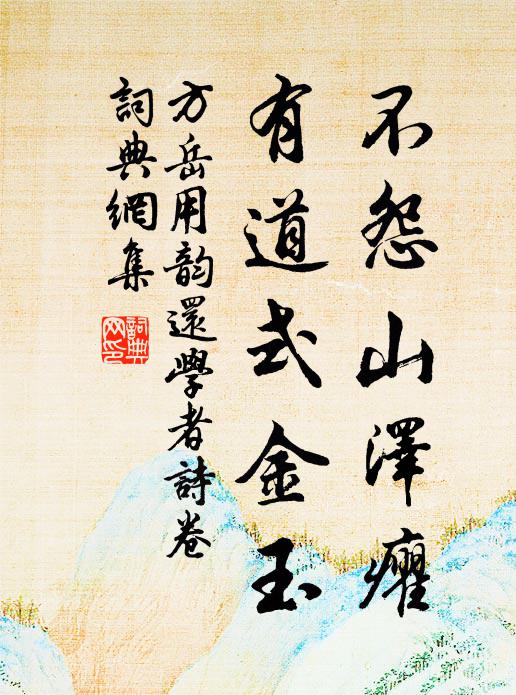 不怨山澤癯
有道式金玉
方岳用韵還學者詩卷
詞典網集
詞典
网印